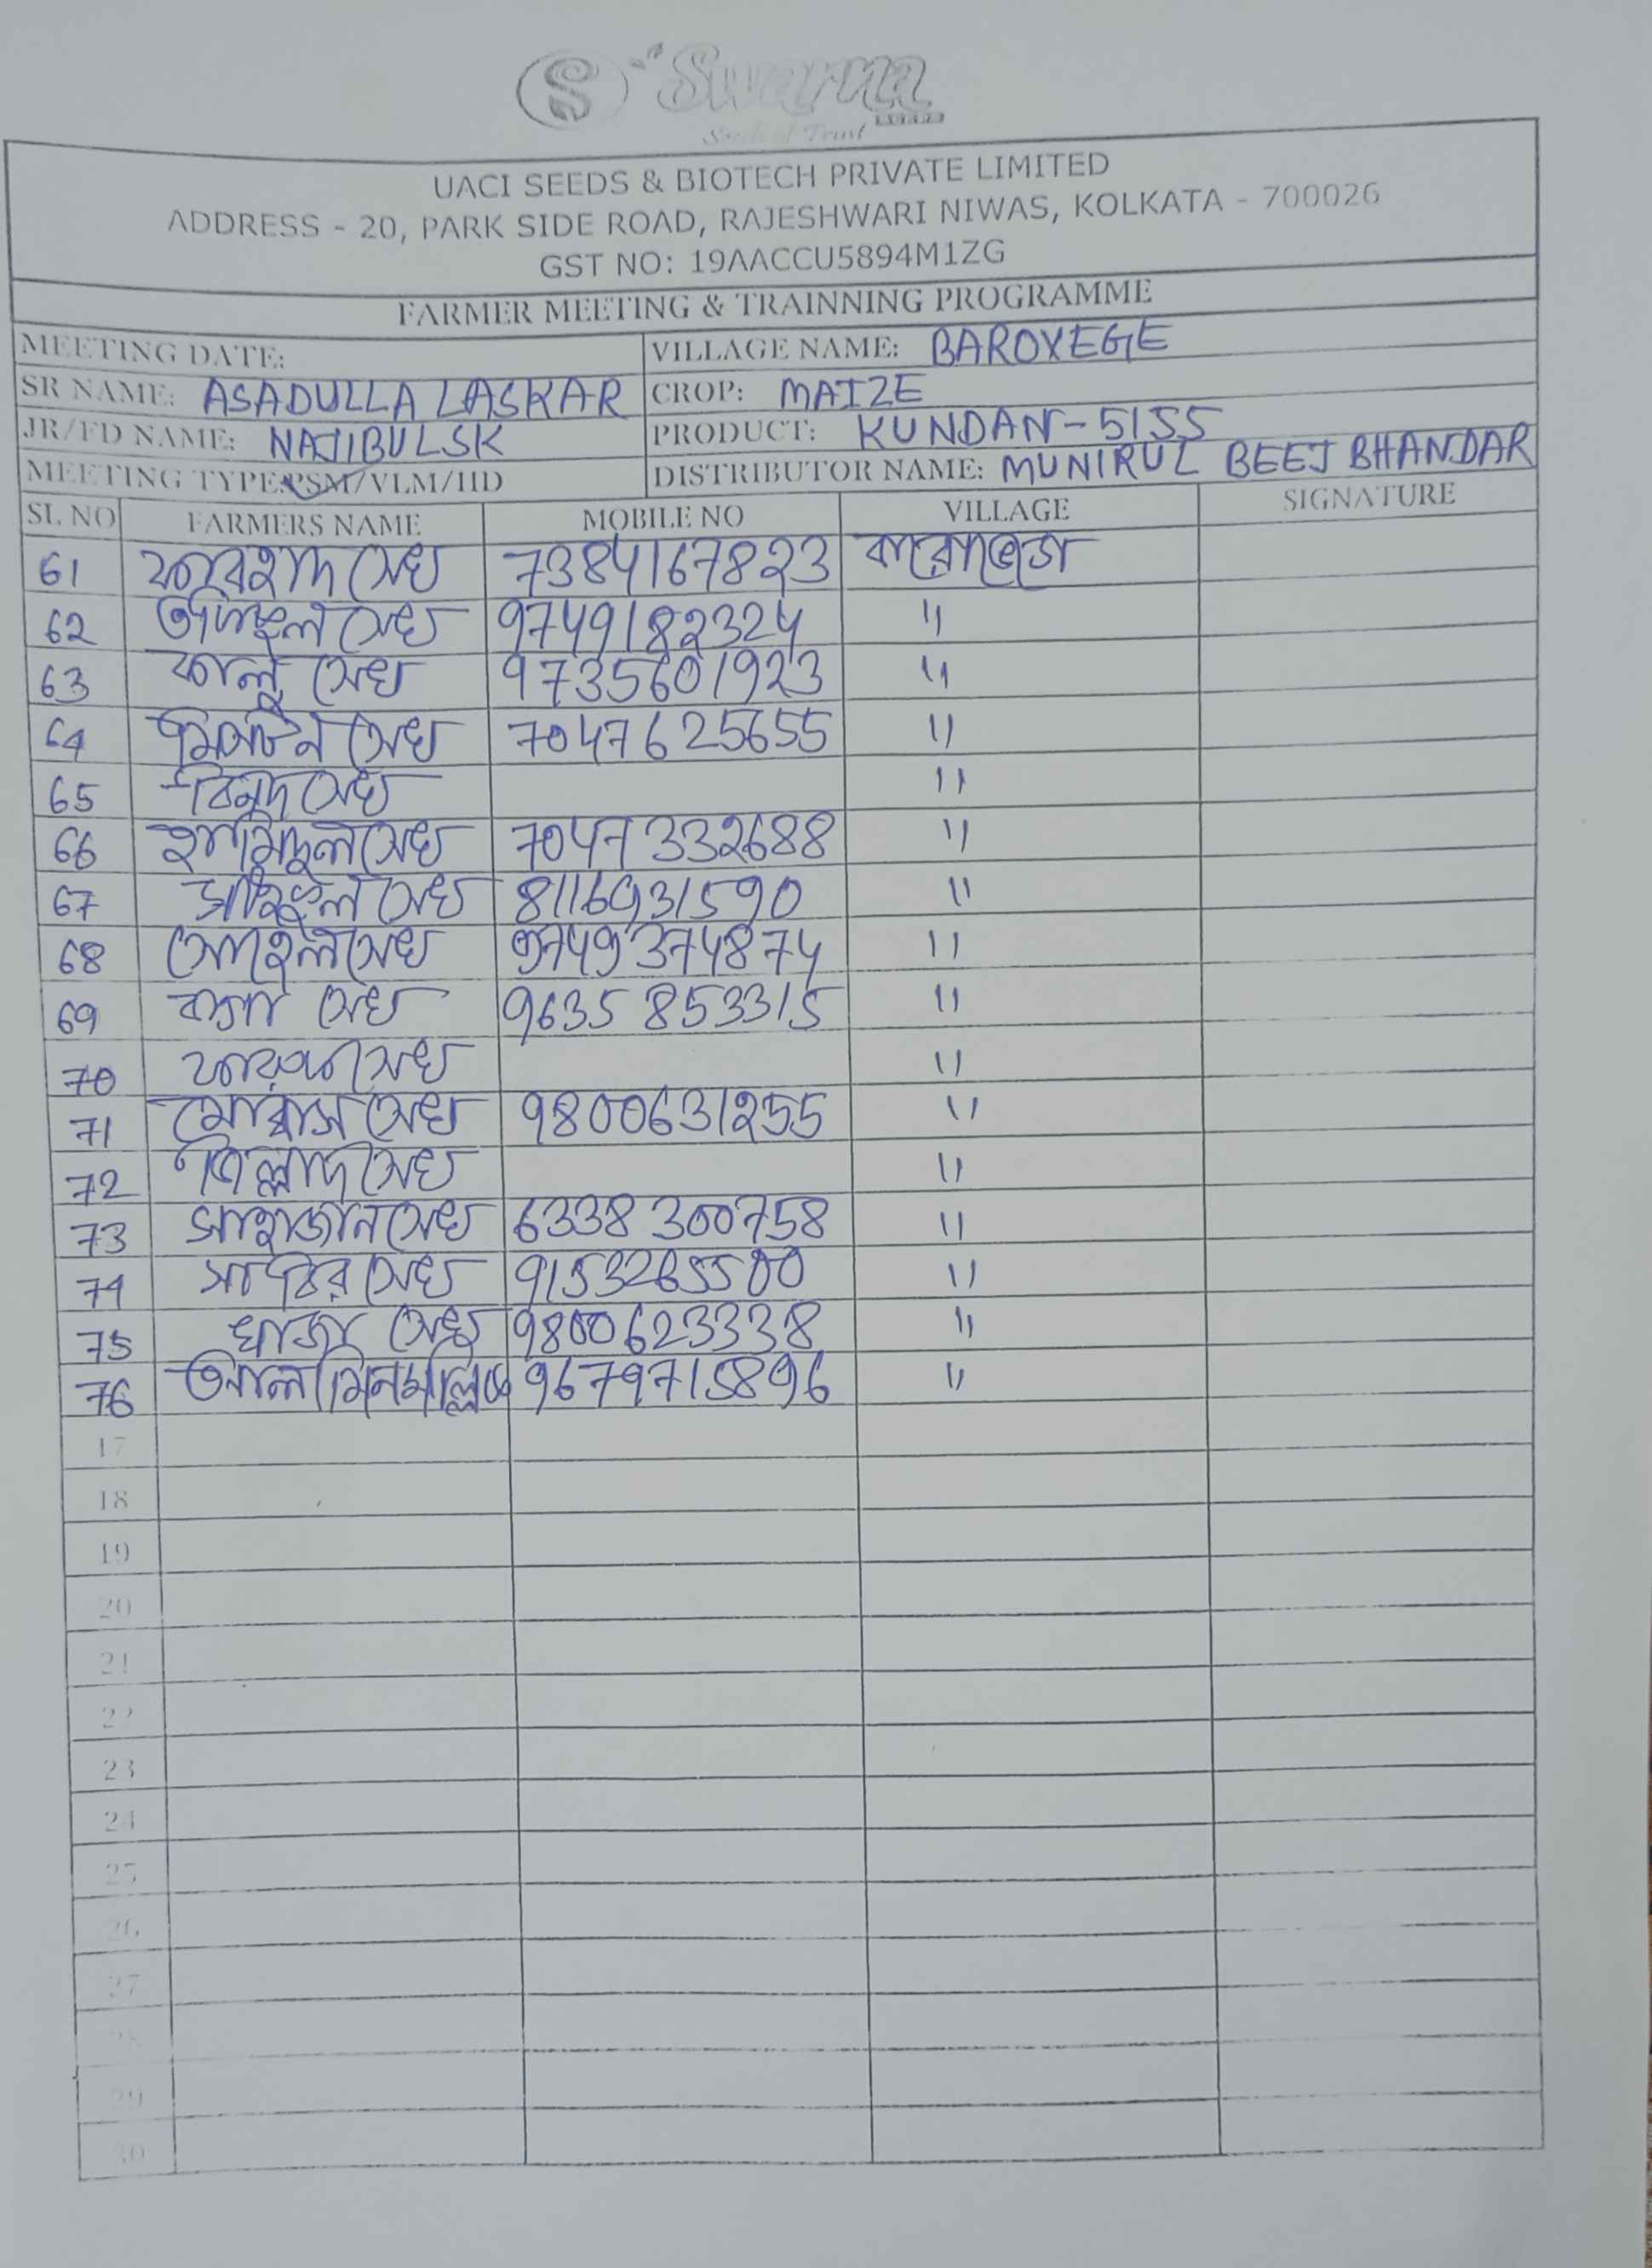 Swarna
Seeds of Trust
UACI SEEDS & BIOTECH PRIVATE LIMITED
ADDRESS - 20, PARK SIDE ROAD, RAJESHWARI NIWAS, KOLKATA - 700026
GST NO: 19AACCU5894M1ZG
FARMER MEETING & TRAINNING PROGRAMME
MEETING DATE: VILLAGE NAME: BAROVEGE
SR NAME: ASADULLA LASKAR CROP: MAIZE
JR/FD NAME: NAJIBUL SK PRODUCT: KUNDAN-5155
MEETING TYPE: PSM/VLM/HD DISTRIBUTOR NAME: MUNIRUL BEEJ BHANDAR
SL NO FARMERS NAME MOBILE NO VILLAGE SIGNATURE
61 ফারহাদ সেখ 7384167823
62 সেখ 9749182324 "
63 কালু সেখ 9735601923 "
64 মিলটন সেখ 7047625655 "
65 সেখ "
66 হামিদুল সেখ 7047332688 "
67 সেখ 8116931590 "
68 সেখ 9749374874 "
69 সেখ 9635853315 "
70 ফারুক সেখ "
71 সেখ 9800631255 "
72 সেখ "
73 সাহাজান সেখ 6338300758 "
74 সাব্বির সেখ 9153265500 "
75 খাজা সেখ 9800623338 "
76 আলামিন মল্লিক 9679715896 "
17
18
19
20
21
22
23
24
25
26
27
28
29
30